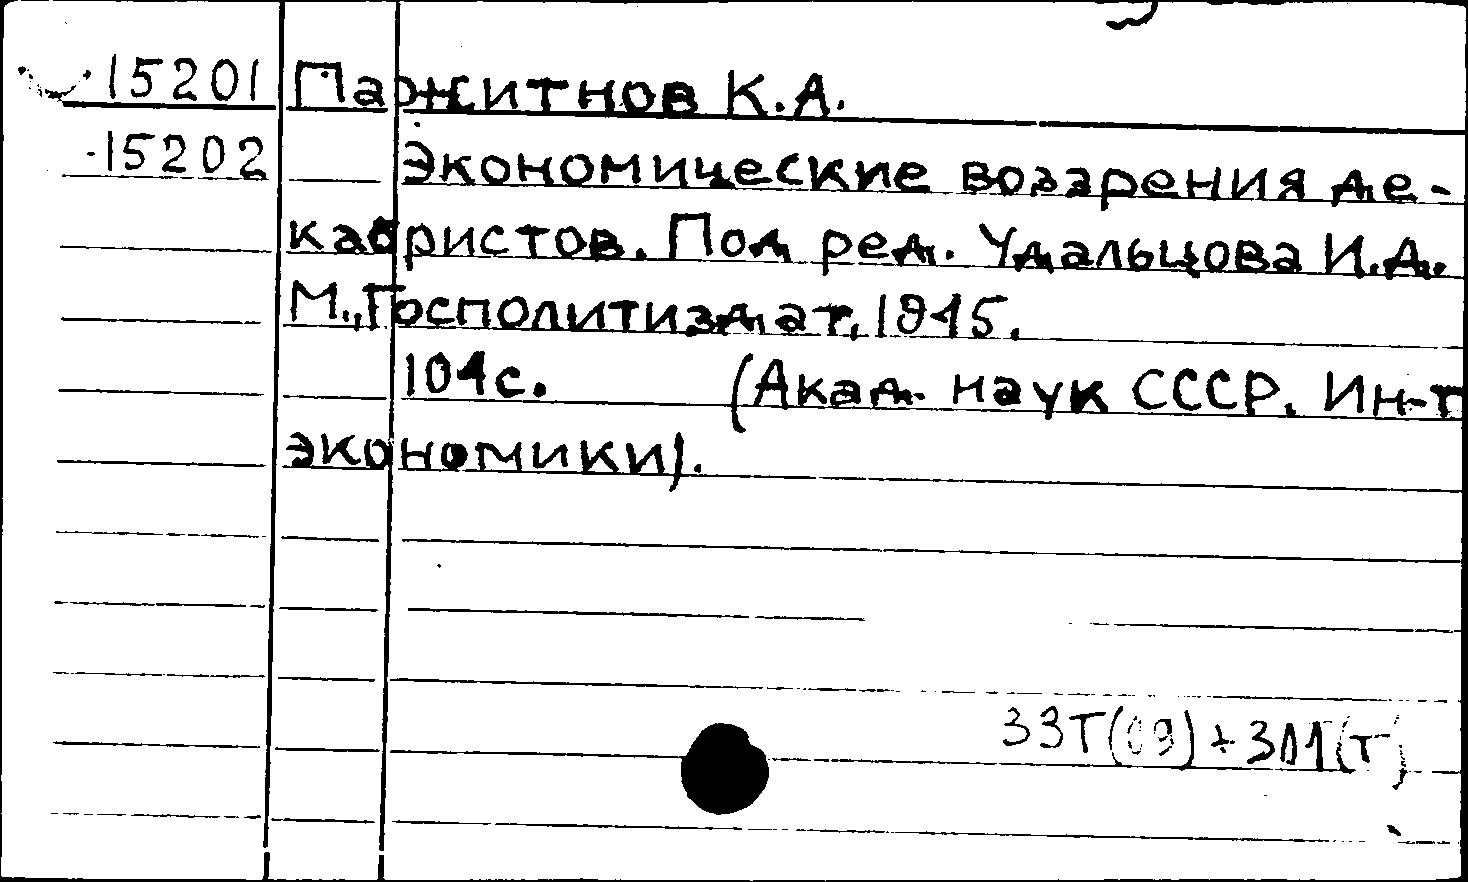 15201 Пажитнов К.А.
15202 Экономические воззрения де-
кабристов. Под ред. Удальцова И.Д.
М., Госполитиздат, 1945.
104с. (Акад. наук СССР. Ин-т
экономики).
33Т(09)+3И1(Т)